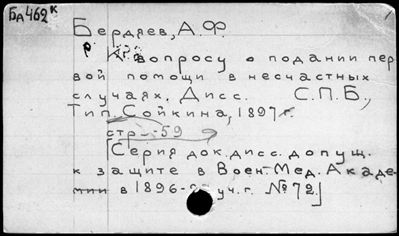 Ба462к
Бердяев, А.Ф.
К вопросу о подании пер
вой помощи в несчастных
случаях. Дисс. С.П.Б.,
Тип. Сойкина, 1897г.
стр. 59
[Серия док. дисс. допущ.
к защите в Воен. Мед. Акаде-
мии в 1896- уч. г. №72]